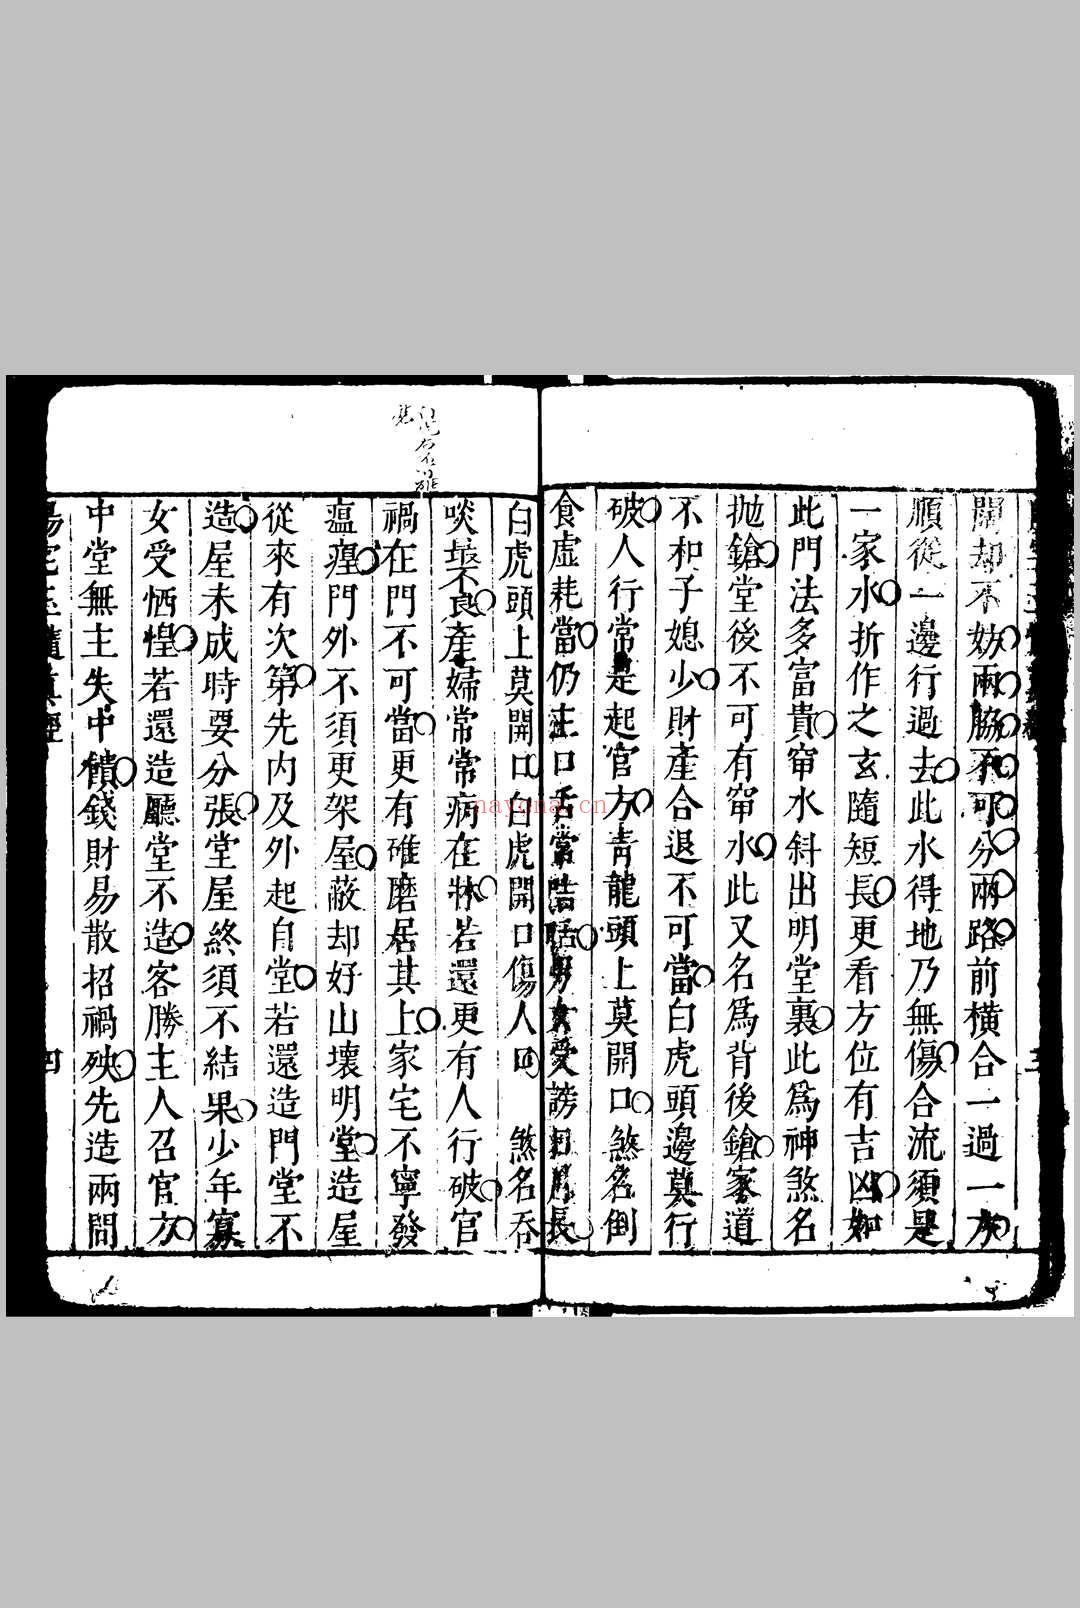 開却不妨兩脇不可分兩路前橫合一過一方
順從一邊行過去此水得地乃無傷合流須是
一家水折作之玄隨短長更看方位有吉凶如
此門法多富貴窜水斜出明堂裏此爲神煞名
拋鎗堂後不可有窜水此又名爲背後鎗家道
不和子媳少財產合退不可當白虎頭邊莫行
破人行常是起官方青龍頭上莫開口煞名倒
食虛耗當仍主口舌常 男女受謗 長
白虎頭上莫開口白虎開口傷人口 煞名吞
啖 不良產婦常常病在牀若還更有人行破官
禍在門不可當更有碓磨居其上家宅不寧發
瘟㾮門外不須更架屋蔽却好山壞明堂造屋
從來有次第先內及外起自堂若還造門堂不
造屋未成時要分張堂屋終須不結果少年寡
女受恓惶若還造廳堂不造客勝主人召官方
中堂無主失中饋錢財易散招禍殃先造兩間
陽宅玉髓真經 四
nayona.cn